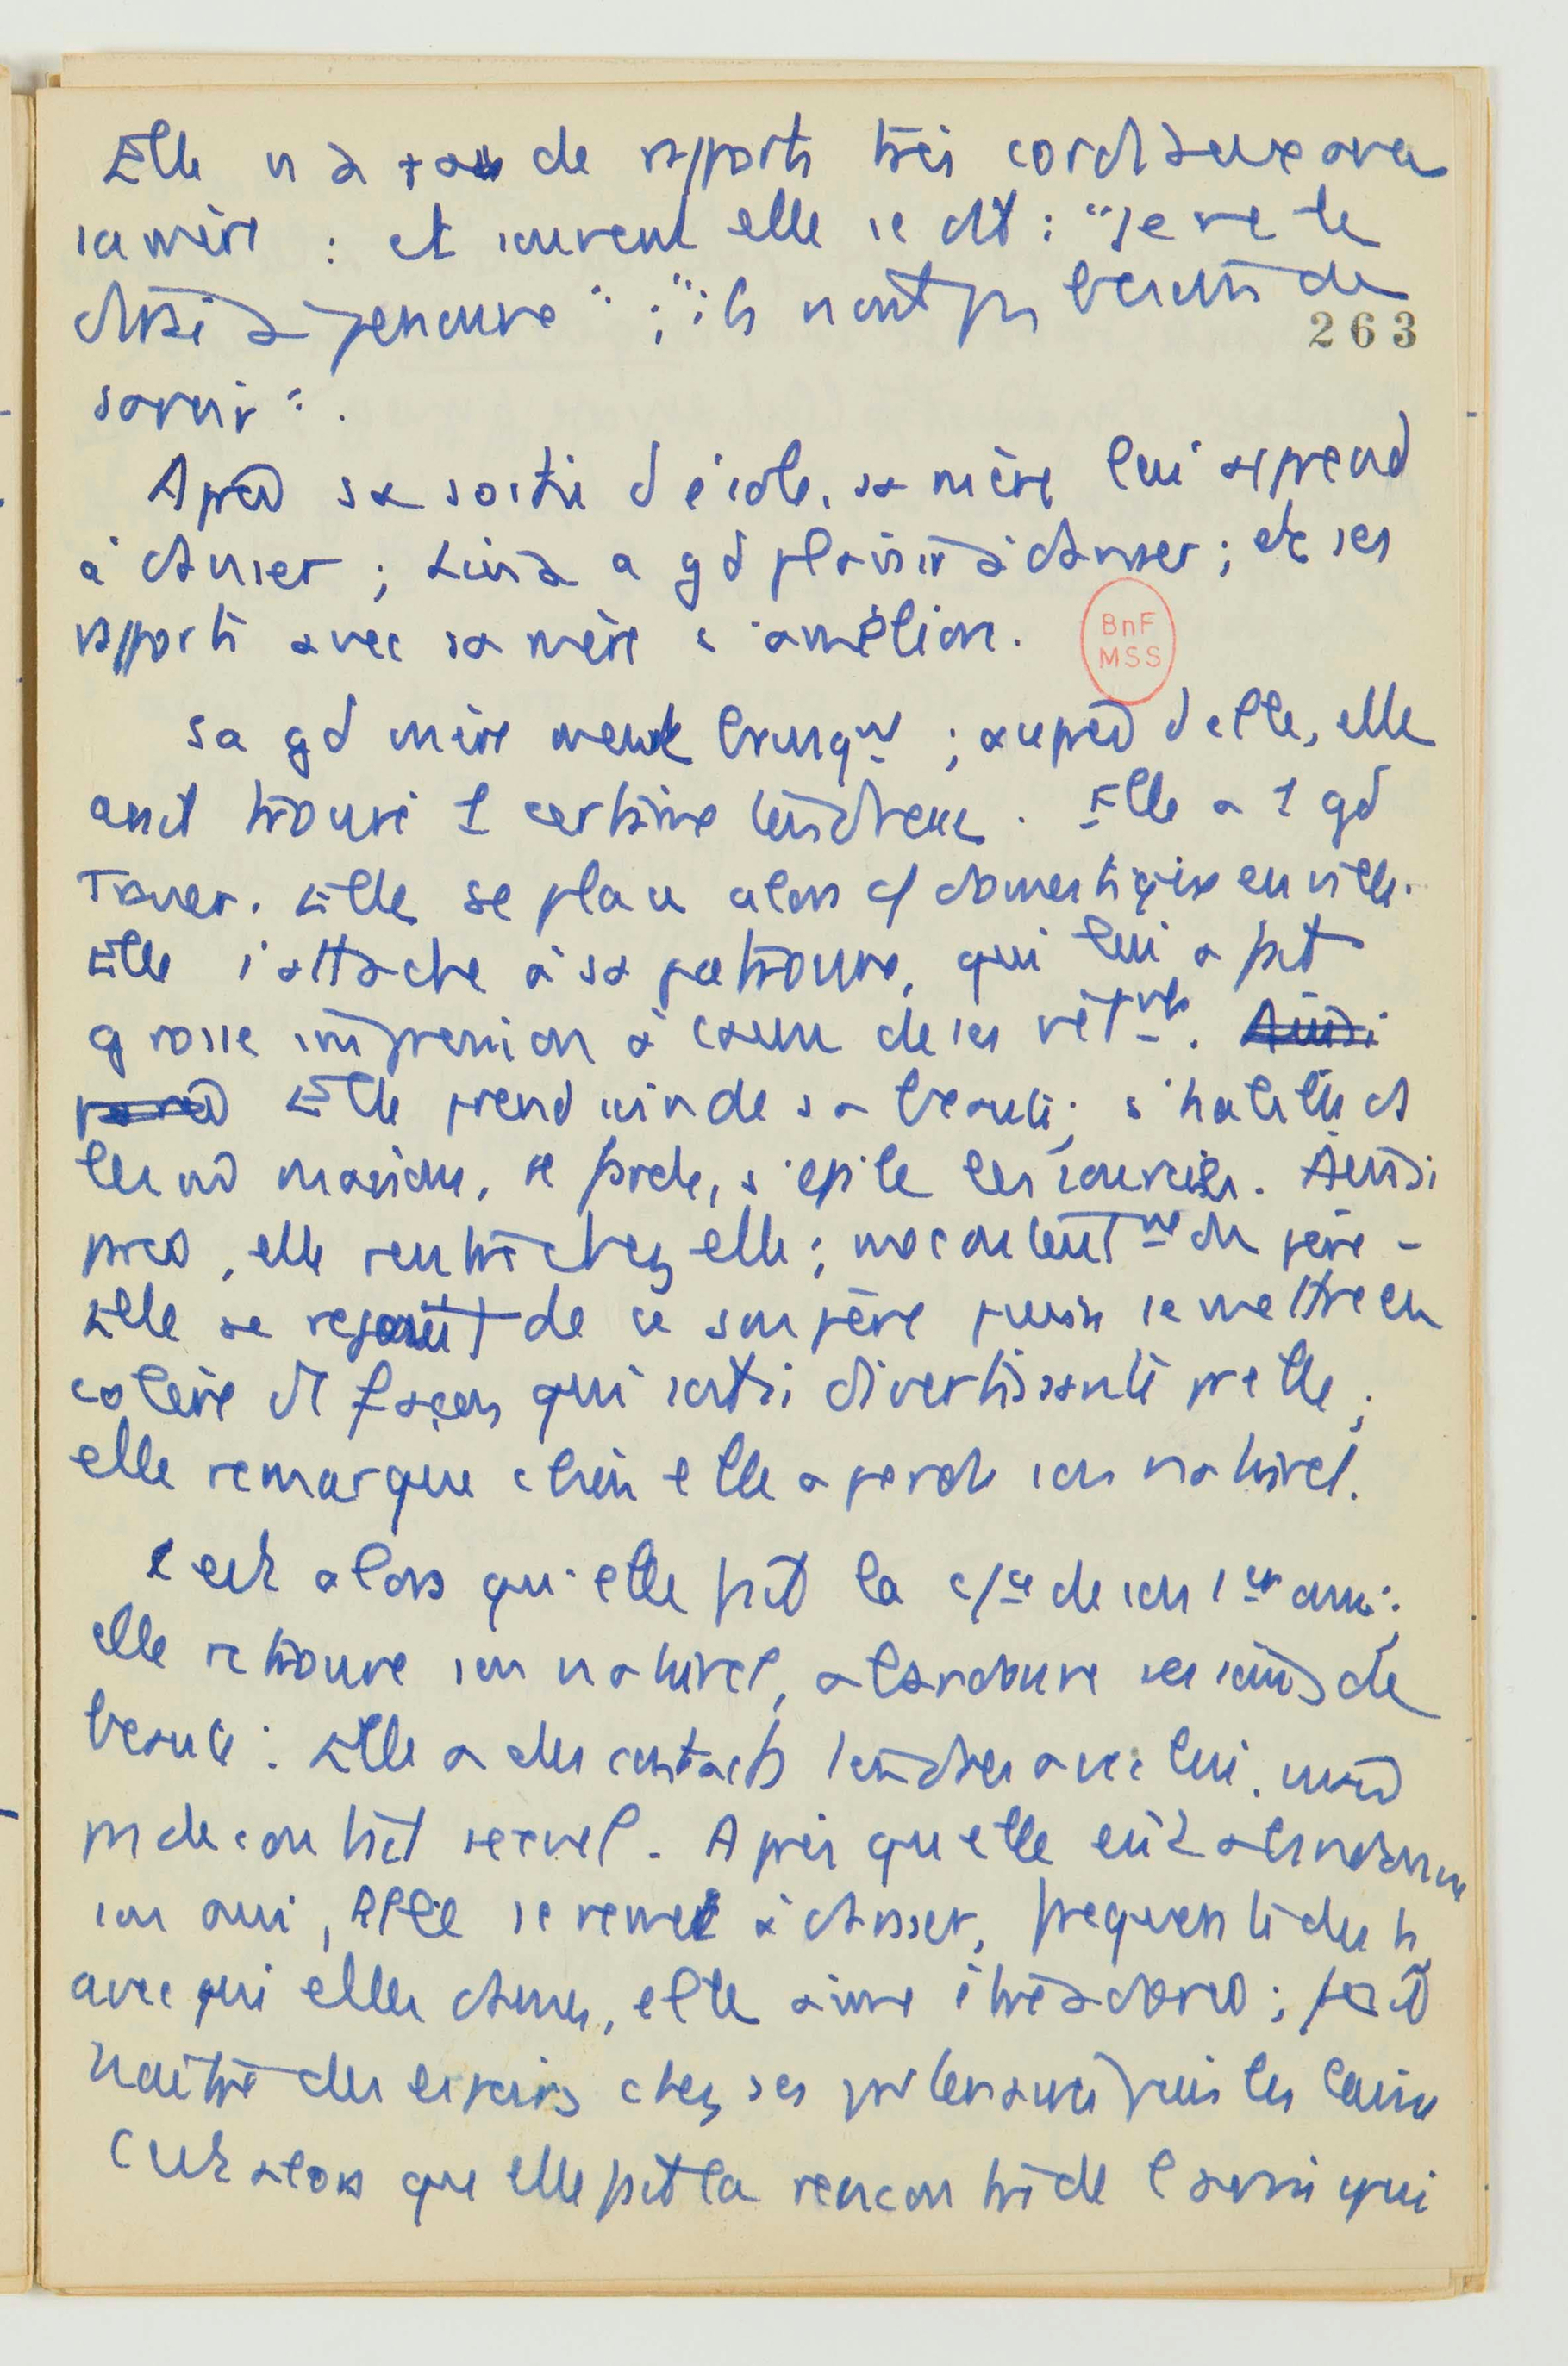 Elle n'a pas de rapports très cordiaux avec
sa mère : et souvent elle se dit : "je ne le
dirai à personne" ; "ils n'ont pas besoin de
263
savoir".
Après sa sortie d'école, sa mère lui apprend
à danser ; Linda a gd plaisir à danser ; et ses
rapports avec sa mère s'améliore.
BnF
MSS
Sa gd mère meurt brusqnt ; auprès d'elle, elle
avait trouvé 1 certaine tendresse. Elle a 1 gd
Elle se place alors c/ domestique en ville.
Elle s'attache à sa patronne, qui lui a fait
grosse impression à cause de ses vêtnts. Ainsi
Elle prend soin de sa beauté ; s'habille et
se farde, s'épile les sourcils. Ainsi
parée, elle rentre chez elle ; mécontentnt du père -
Elle se rejouit de ce son père puisse se mettre en
colère de façon qui divertissante pr elle ;
elle remarque elle a perdu son naturel.
C'est alors qu'elle fait la c/ce de son 1er ami ;
elle retrouve son naturel, abandonne ses soins de
beauté : Elle a des contacts tendres avec lui, mais
pas de contact sexuel. Après qu'elle eût abandonné
son ami, elle se remet à danser, fréquente des h.
avec qui elle danse, elle aime être adorée ; fait
naître des espoirs chez ses partenaires puis les laisse
C'est alors que elle fait la rencontre de qui